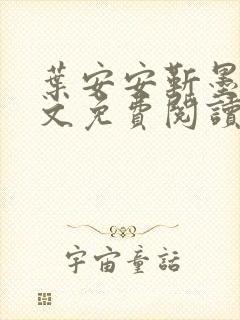 葉安安靳墨
文免費閱讀
宇宙童話